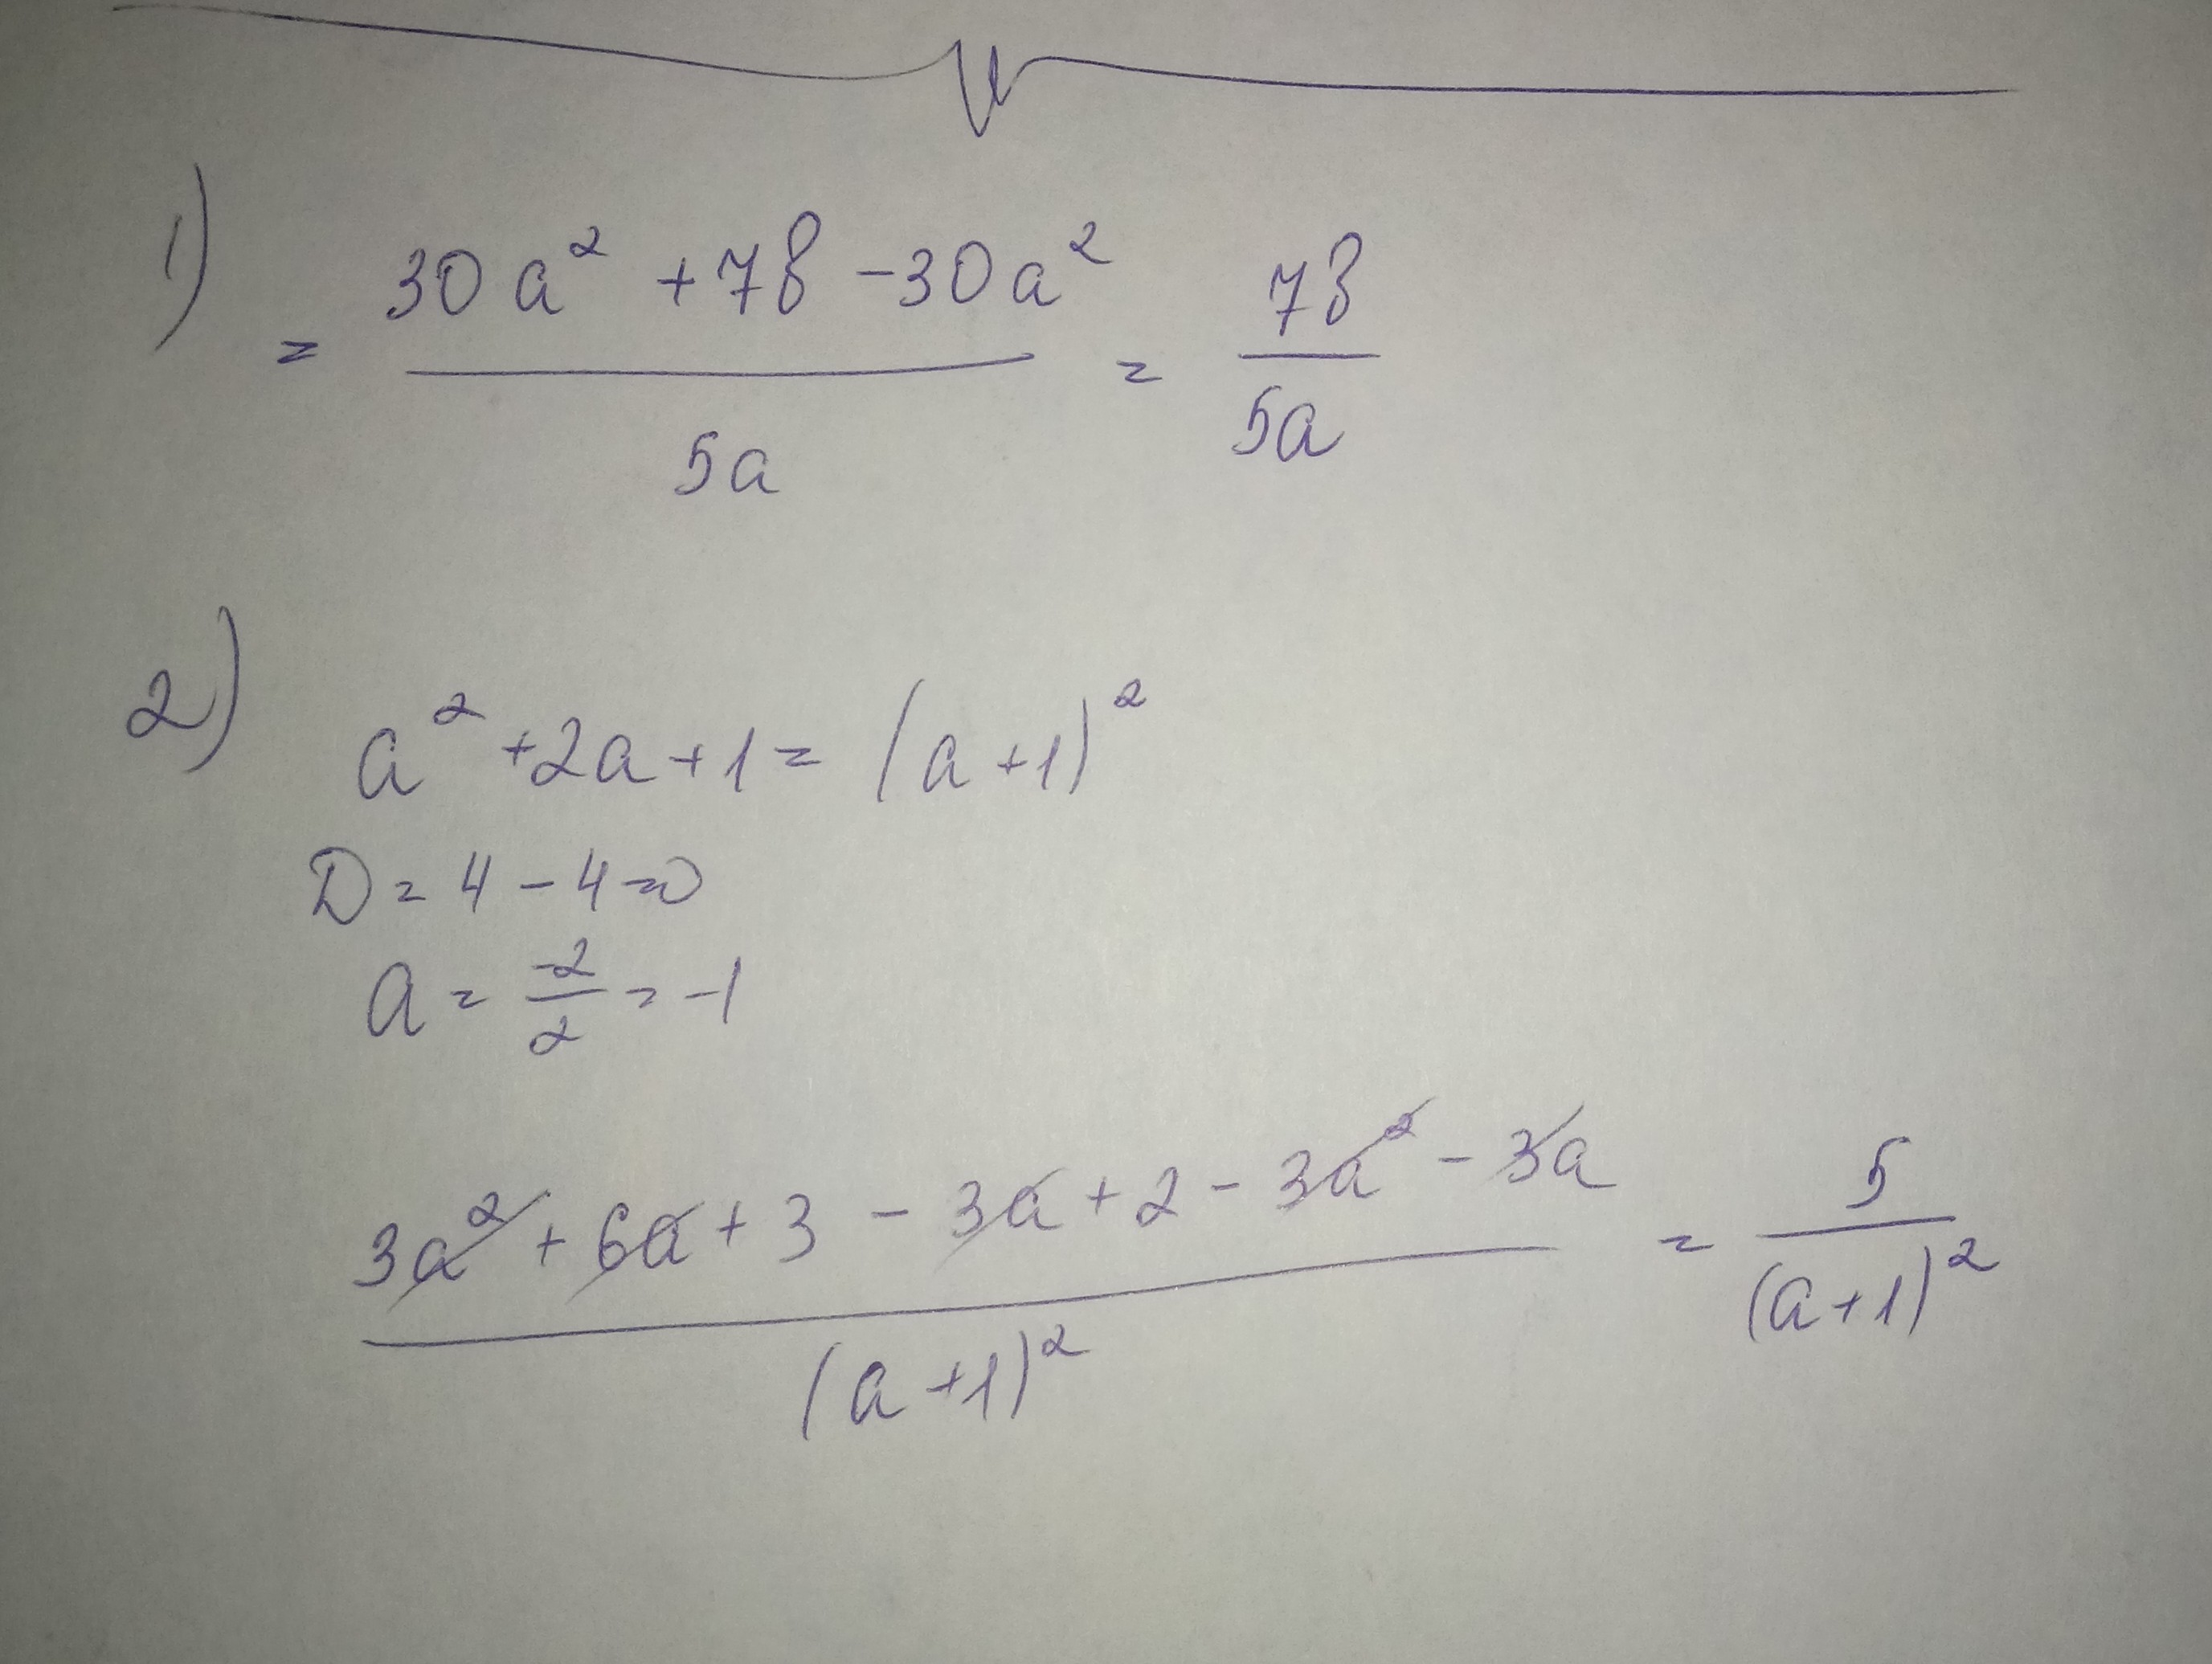 1) = (30a² + 7b - 30a²) / 5a = 7b / 5a
2) a² + 2a + 1 = (a + 1)²
D = 4 - 4 = 0
a = -2/2 = -1
(3a² + 6a + 3 - 3a + 2 - 3a² - 3a) / (a + 1)² = 5 / (a + 1)²